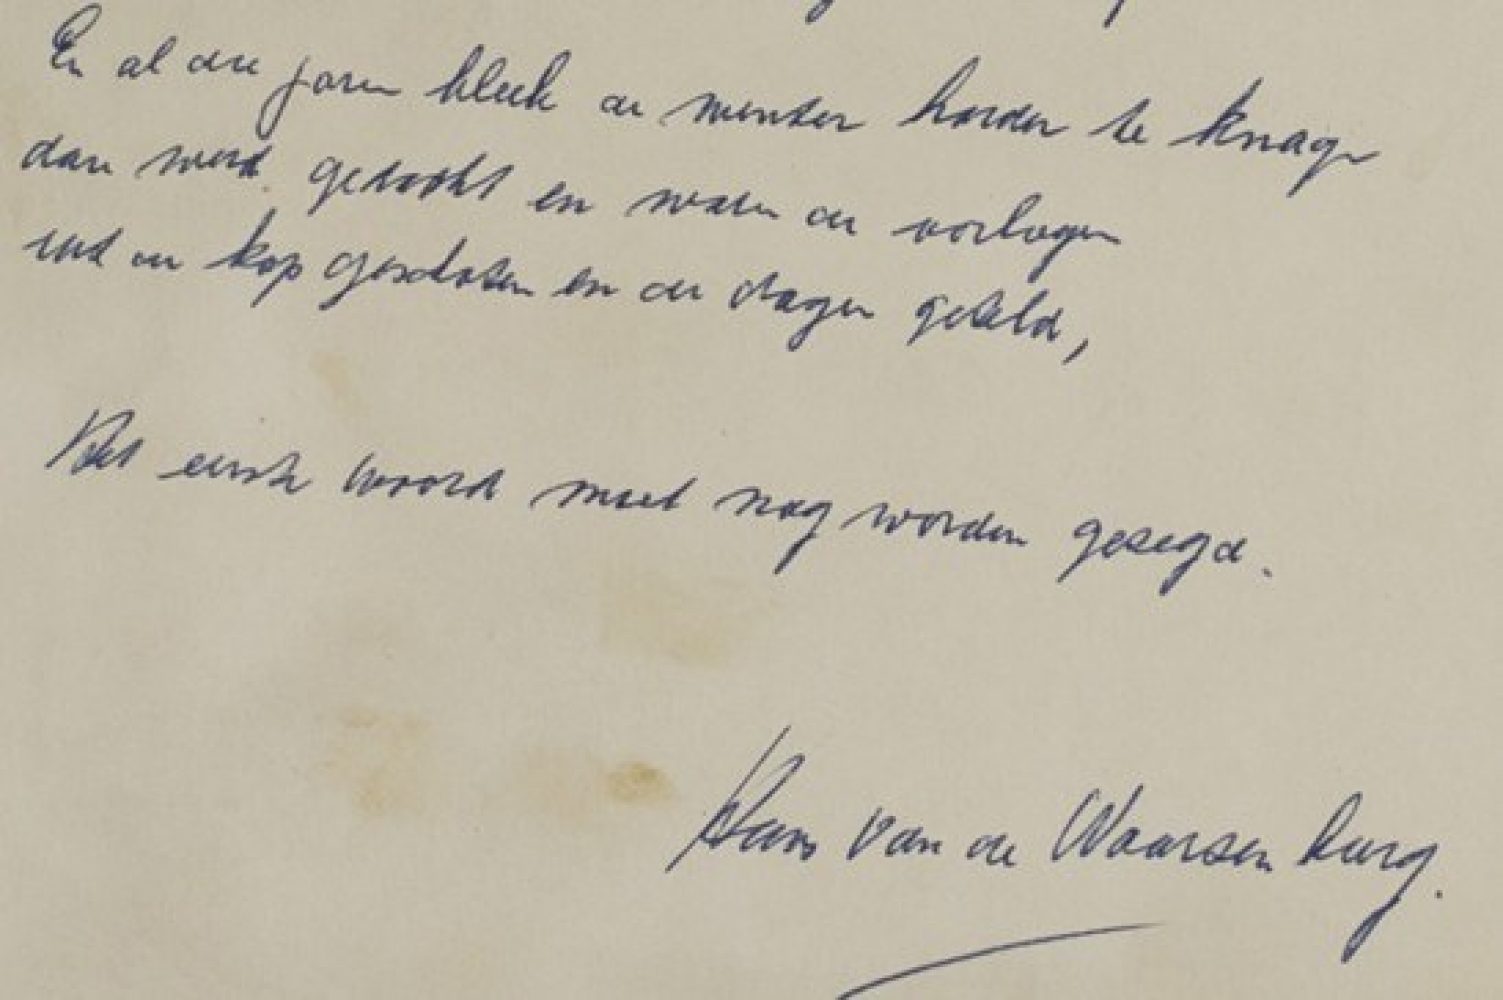 En al die jaren bleek de winter harder te knagen
dan werd gedacht en waren de oorlogen
uit de kop gesloten en de dagen geteld,
Het eerste woord moet nog worden gezegd.
Hans van de Waarsenburg.